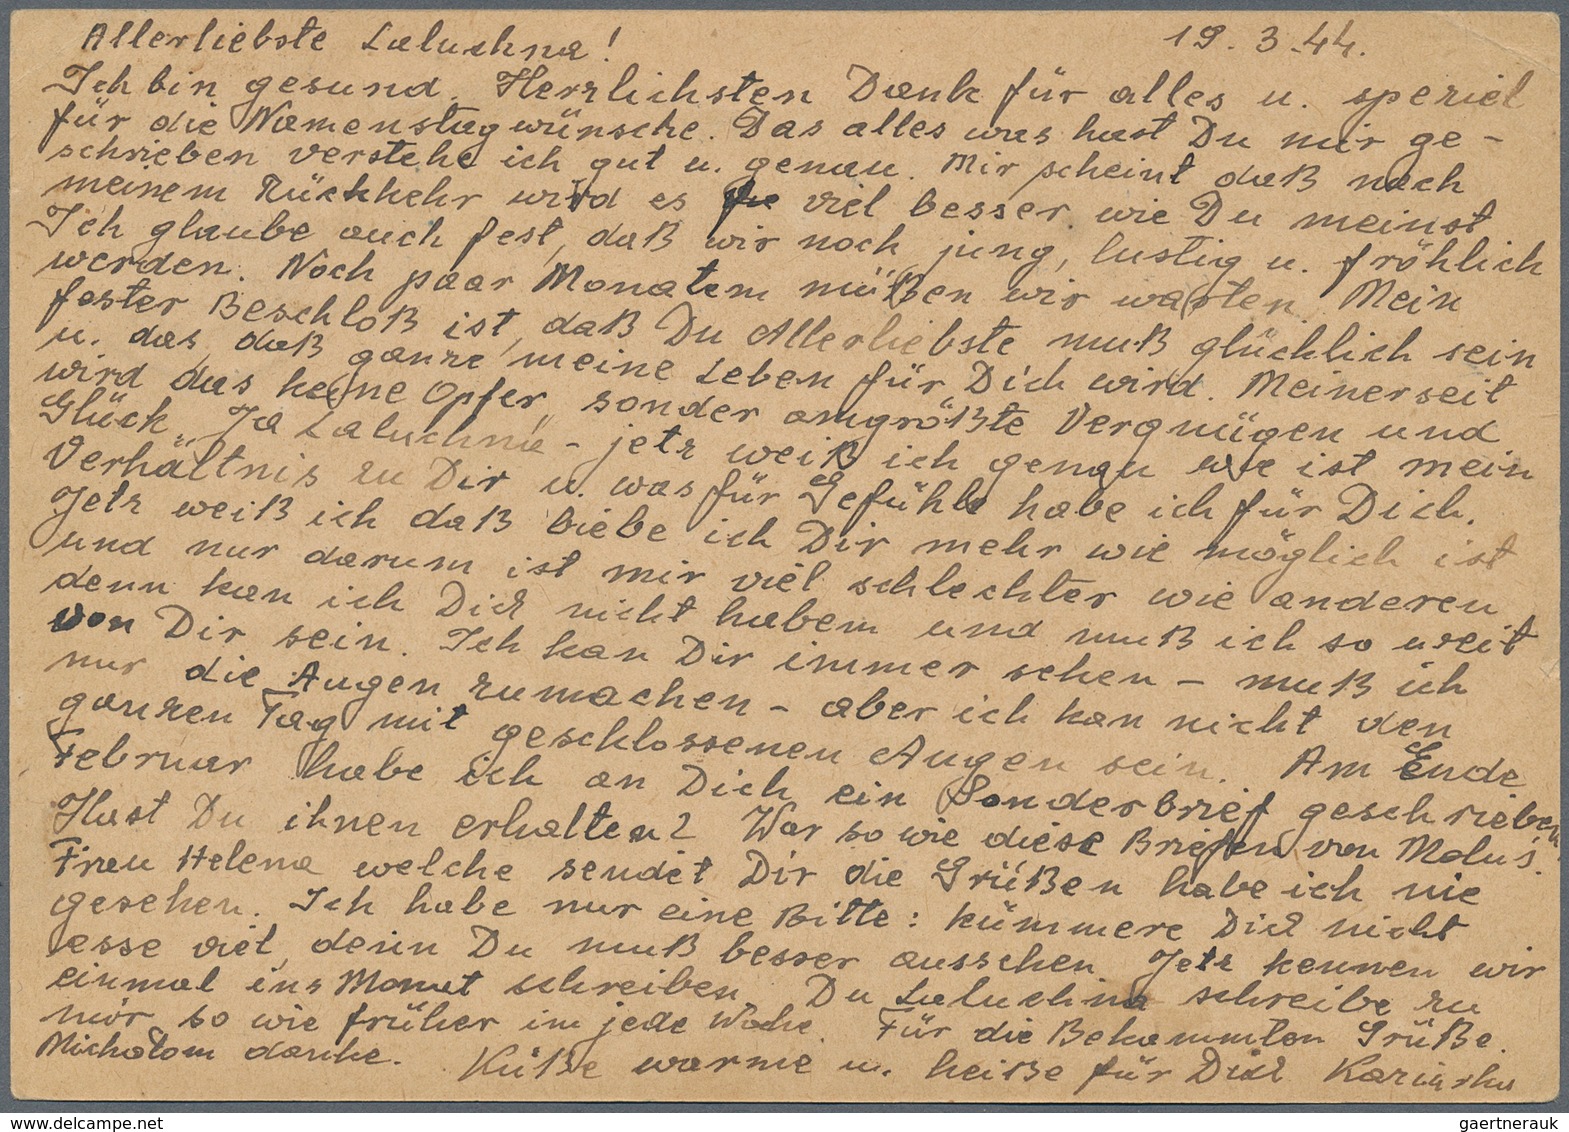 Allerliebste Laluchna! 19.3.44.
Ich bin gesund. Herzlichsten Dank für alles u. speziel
für die Namenstagwünsche. Das alles was hast Du mir ge-
schrieben verstehe ich gut u. genau. Mir scheint daß nach
meinem Rückkehr wird es viel besser wie Du meinst.
Ich glaube auch fest, daß wir noch jung, lustig u. fröhlich
werden. Noch paar Monatem müßen wir warten. Mein
fester Beschloß ist, daß Du Allerliebste muß glücklich sein
u. das, daß ganze meine Leben für Dich wird. Meinerseit
wird das keine Opfer, sonder amgrößte Vergnügen und
Glück. Ja Laluchna - jetz weiß ich genau wie ist mein
Verhältnis zu Dir u. was für Gefühle habe ich für Dich.
Jetz weiß ich daß liebe ich Dir mehr wie möglich ist
und nur darum ist mir viel schlechter wie anderen
denn kan ich Dich nicht habem und muß ich so weit
von Dir sein. Ich kan Dir immer sehen - muß ich
nur die Augen zumachen - aber ich kan nicht den
ganzen Tag mit geschlossenen Augen sein. Am Ende
Februar habe ich an Dich ein Sonderbrief geschrieben
Hast Du ihnen erhalten? War so wie diese Briefen von Malus.
Frau Helena welche sendet Dir die Grüßen habe ich nie
gesehen. Ich habe nur eine Bitte: kümmere Dich nicht
esse viel, denn Du muß besser aussehen. Jetz kennen wir
einmal ins Monat schreiben. Du Laluchna schreibe zu
mir so wie früher im jede Woche. Für die Bekammten Grüße.
danke. Küße warme u. heiße für Dich
gaertnerauk / delcampe.net